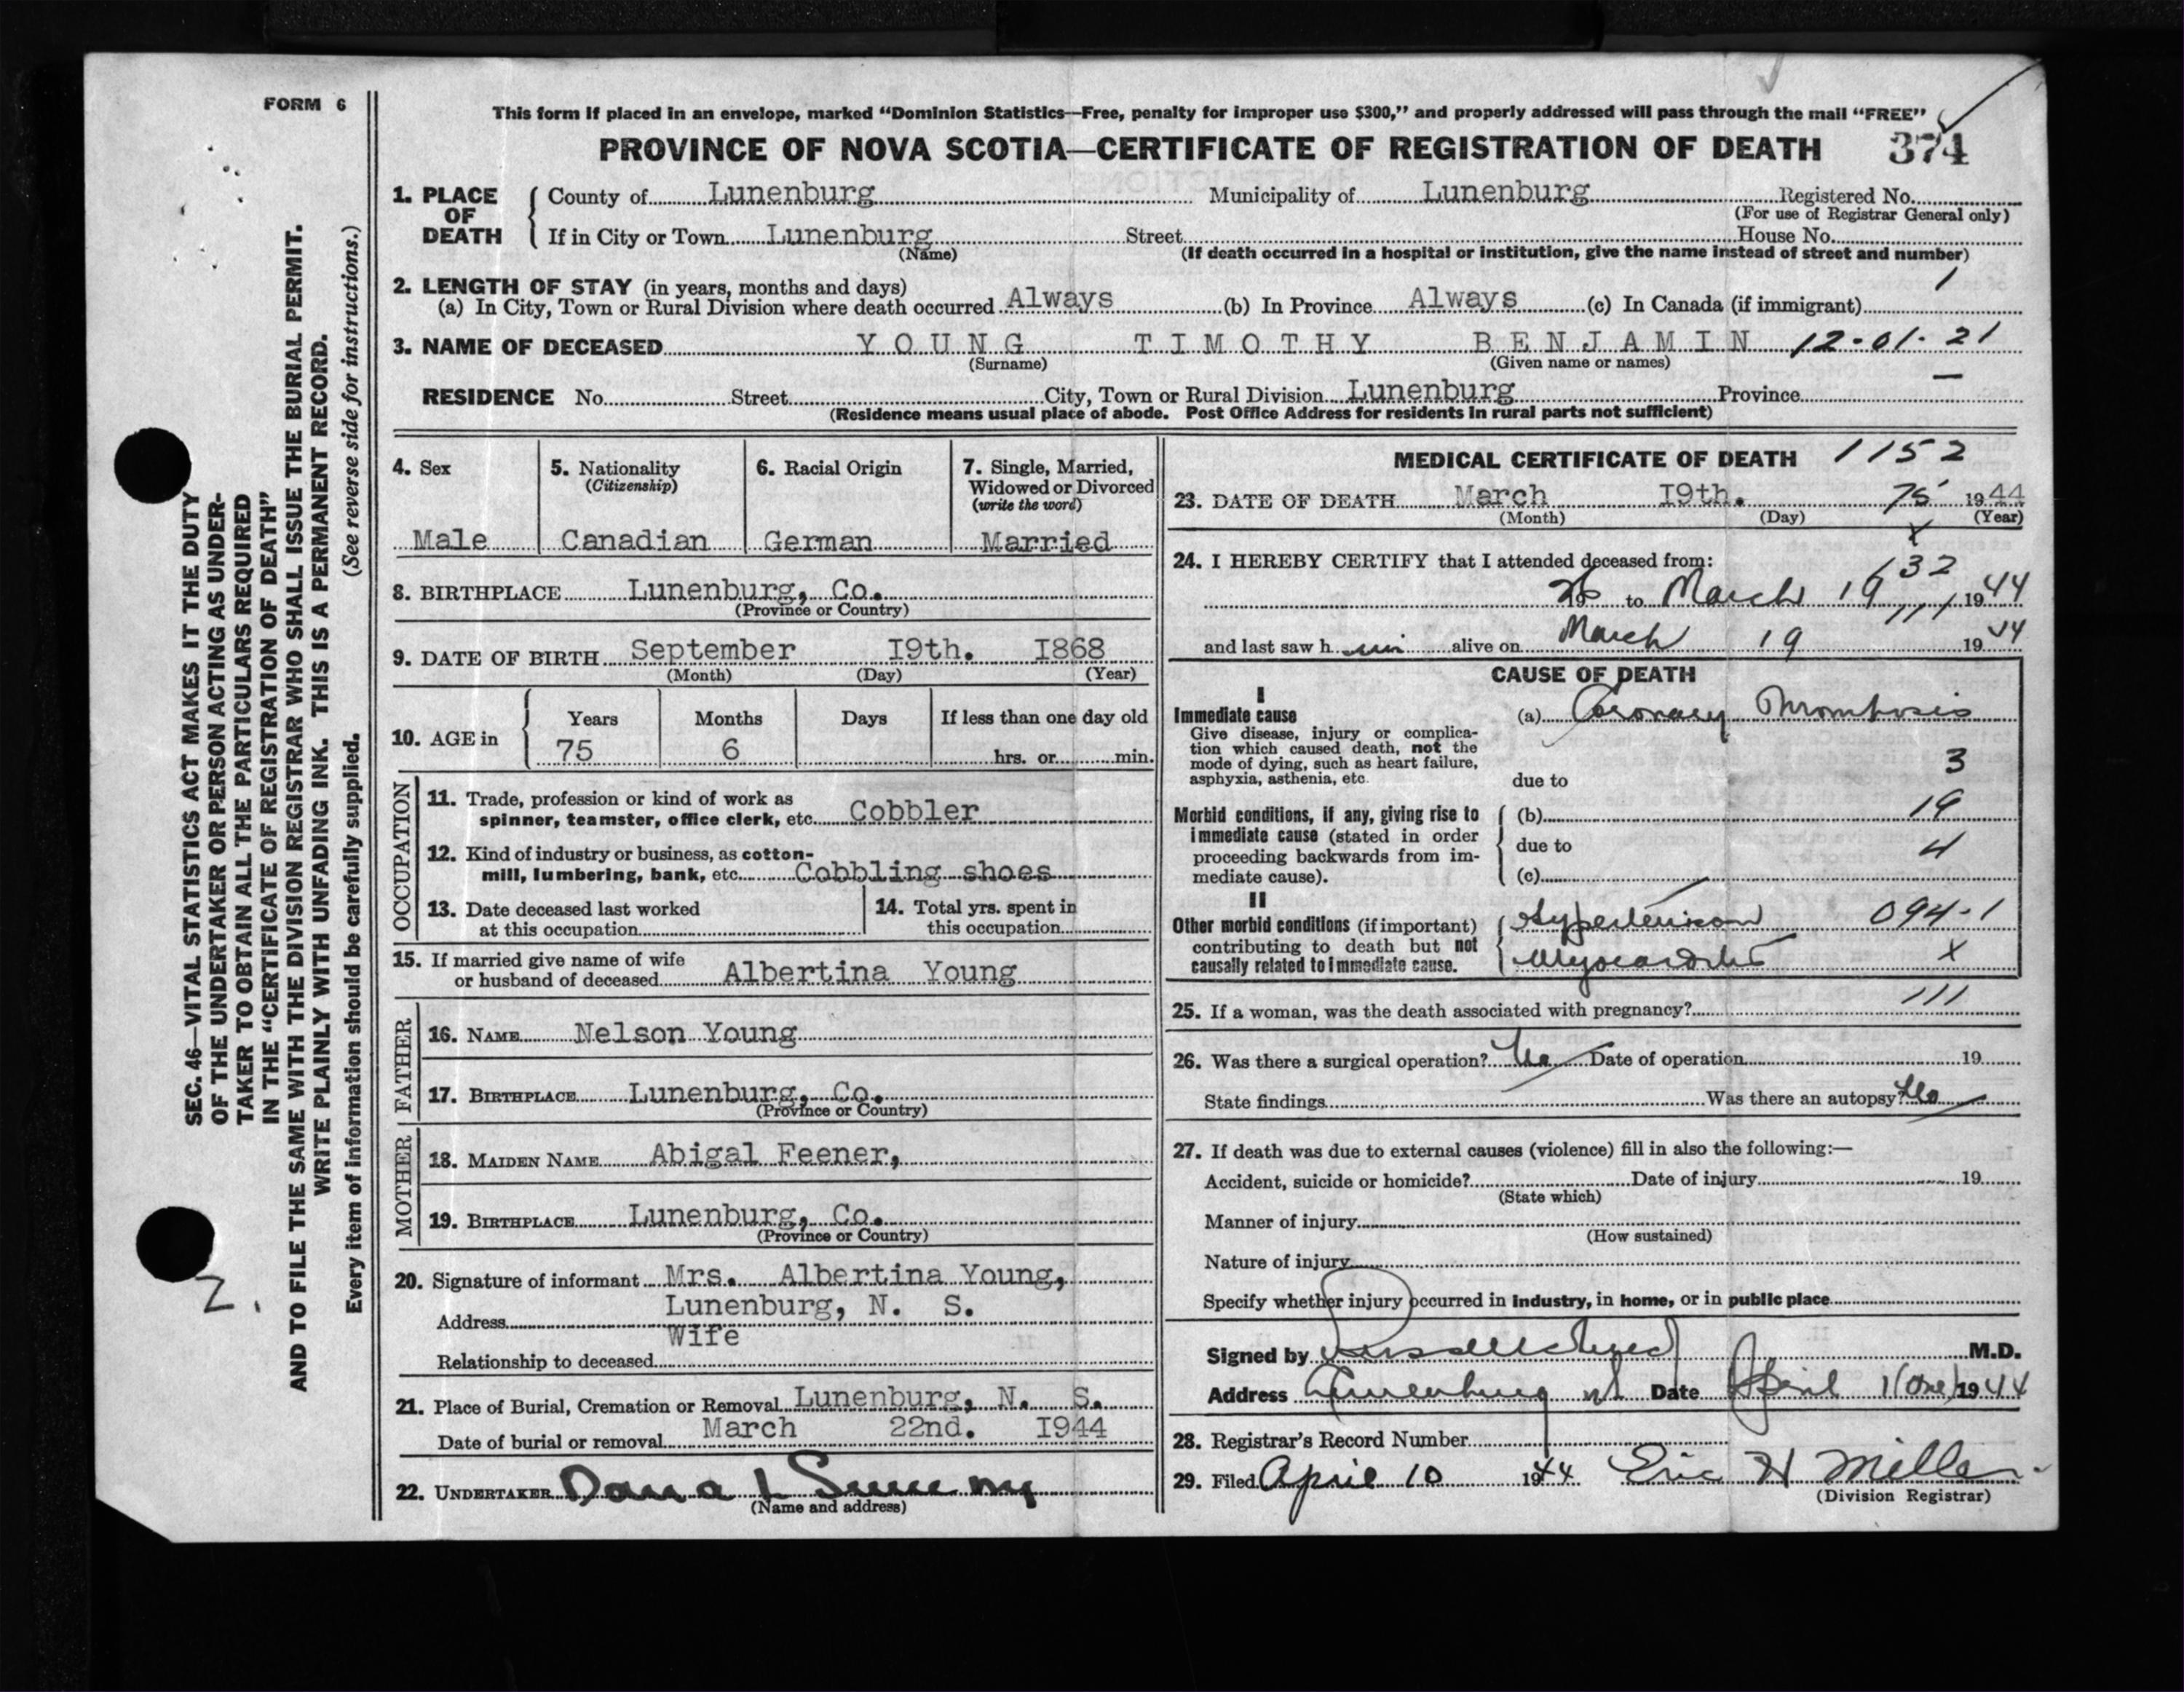 FORM 6
This form if placed in an envelope, marked “Dominion Statistics—Free, penalty for improper use $300,” and properly addressed will pass through the mail “FREE”
PROVINCE OF NOVA SCOTIA—CERTIFICATE OF REGISTRATION OF DEATH 374
SEC. 46—VITAL STATISTICS ACT MAKES IT THE DUTY
OF THE UNDERTAKER OR PERSON ACTING AS UNDER-
TAKER TO OBTAIN ALL THE PARTICULARS REQUIRED
IN THE “CERTIFICATE OF REGISTRATION OF DEATH”
AND TO FILE THE SAME WITH THE DIVISION REGISTRAR WHO SHALL ISSUE THE BURIAL PERMIT.
WRITE PLAINLY WITH UNFADING INK. THIS IS A PERMANENT RECORD.
Every item of information should be carefully supplied. (See reverse side for instructions.)
2.
1. PLACE OF DEATH
County of Lunenburg Municipality of Lunenburg Registered No.
(For use of Registrar General only)
If in City or Town Lunenburg Street House No.
(Name) (If death occurred in a hospital or institution, give the name instead of street and number)
2. LENGTH OF STAY (in years, months and days) 1
(a) In City, Town or Rural Division where death occurred Always (b) In Province Always (c) In Canada (if immigrant)
3. NAME OF DECEASED YOUNG TIMOTHY BENJAMIN 12-01-21
(Surname) (Given name or names)
RESIDENCE No. Street City, Town or Rural Division Lunenburg Province
(Residence means usual place of abode. Post Office Address for residents in rural parts not sufficient)
4. Sex
Male
5. Nationality
(Citizenship)
Canadian
6. Racial Origin
German
7. Single, Married,
Widowed or Divorced
(write the word)
Married
8. BIRTHPLACE Lunenburg, Co.
(Province or Country)
9. DATE OF BIRTH September I9th. I868
(Month) (Day) (Year)
10. AGE in
Years Months Days If less than one day old
75 6 hrs. or min.
OCCUPATION
11. Trade, profession or kind of work as
spinner, teamster, office clerk, etc. Cobbler
12. Kind of industry or business, as cotton-
mill, lumbering, bank, etc. Cobbling shoes
13. Date deceased last worked
at this occupation
14. Total yrs. spent in
this occupation
15. If married give name of wife
or husband of deceased Albertina Young
FATHER
16. NAME Nelson Young
17. BIRTHPLACE Lunenburg, Co.
(Province or Country)
MOTHER
18. MAIDEN NAME Abigal Feener,
19. BIRTHPLACE Lunenburg, Co.
(Province or Country)
20. Signature of informant Mrs. Albertina Young,
Address Lunenburg, N. S.
Relationship to deceased Wife
21. Place of Burial, Cremation or Removal Lunenburg, N. S.
Date of burial or removal March 22nd. I944
22. UNDERTAKER Dana L Sweeny
(Name and address)
MEDICAL CERTIFICATE OF DEATH 1152
23. DATE OF DEATH March I9th. 75 1944
(Month) (Day) (Year)
X
24. I HEREBY CERTIFY that I attended deceased from:
632
19 to March 19 1944
111
and last saw h im alive on March 19 1944
CAUSE OF DEATH
I
Immediate cause
Give disease, injury or complica-
tion which caused death, not the
mode of dying, such as heart failure,
asphyxia, asthenia, etc.
(a) Coronary Thrombosis
due to 3
Morbid conditions, if any, giving rise to
immediate cause (stated in order
proceeding backwards from im-
mediate cause).
(b) 19
due to 4
(c)
II
Other morbid conditions (if important)
contributing to death but not
causally related to immediate cause.
Hypertension 094-1
Myocarditis X
25. If a woman, was the death associated with pregnancy? 111
26. Was there a surgical operation? No Date of operation 19
State findings Was there an autopsy? No
27. If death was due to external causes (violence) fill in also the following:—
Accident, suicide or homicide? Date of injury 19
(State which)
Manner of injury
(How sustained)
Nature of injury
Specify whether injury occurred in industry, in home, or in public place
Signed by M.D.
Address Lunenburg Date April 1944
28. Registrar's Record Number
29. Filed April 10 1944 Eric H Miller
(Division Registrar)